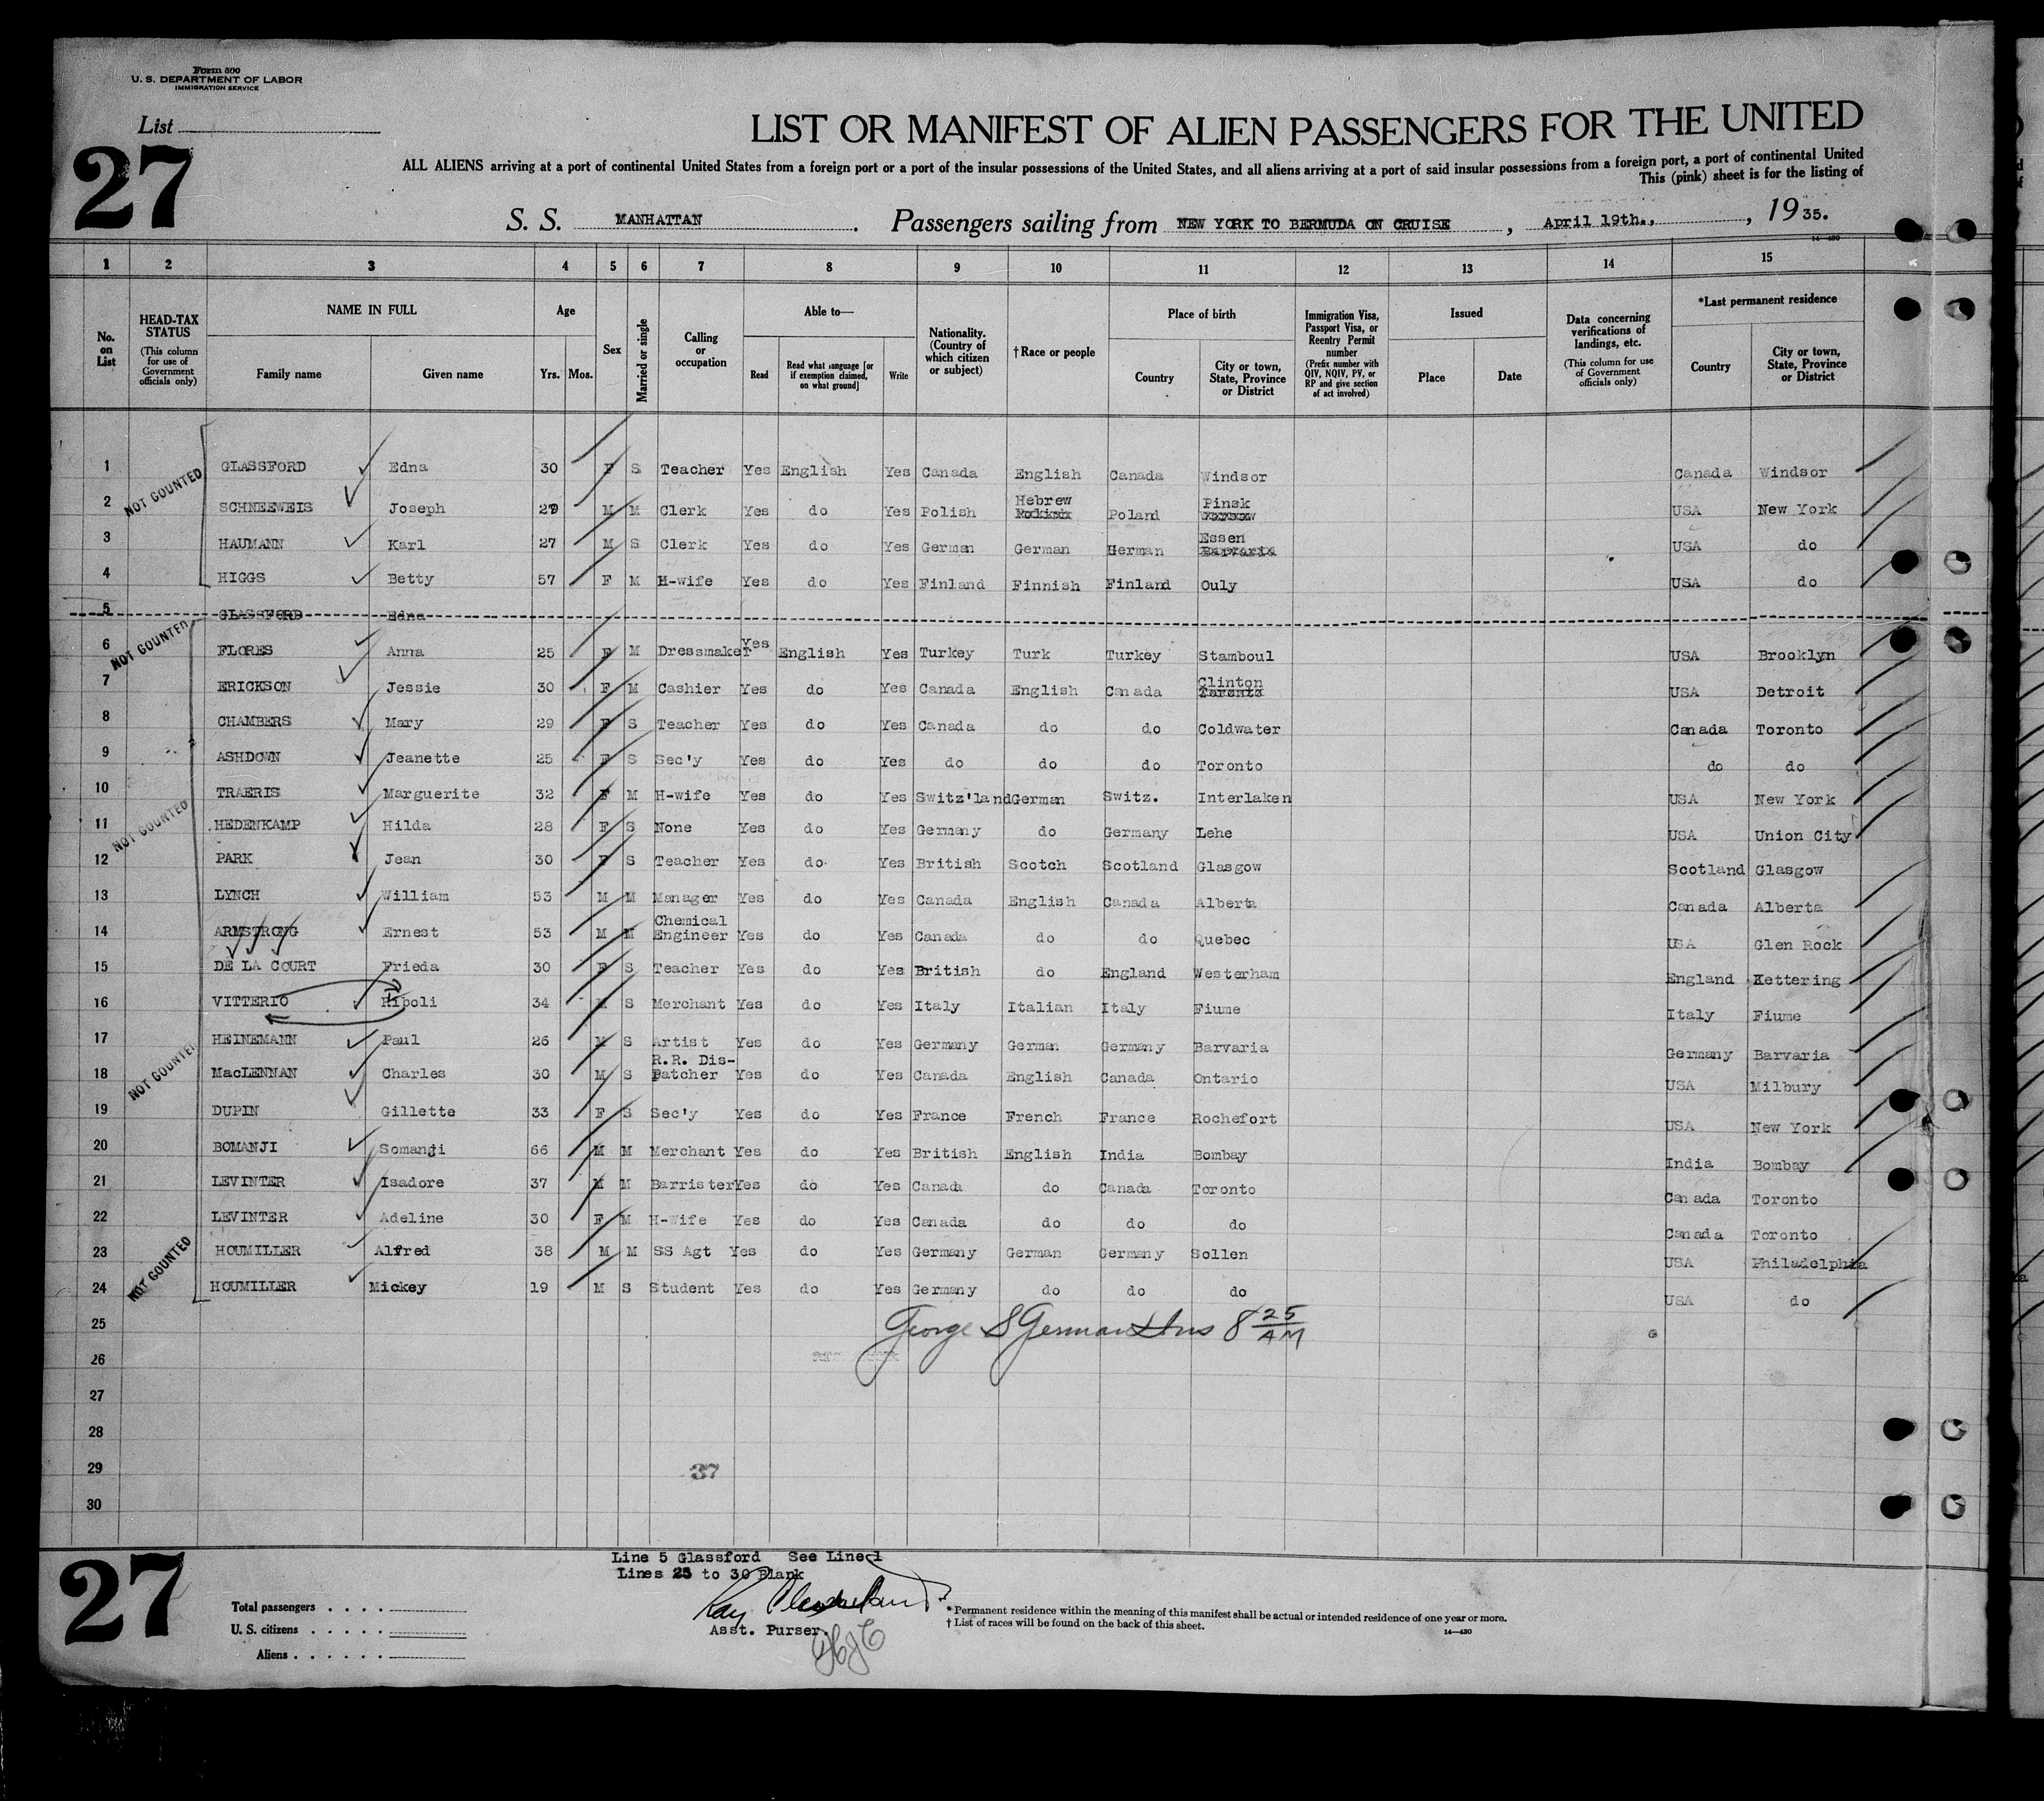 Form 500
U. S. DEPARTMENT OF LABOR
IMMIGRATION SERVICE
List
27
LIST OR MANIFEST OF ALIEN PASSENGERS FOR THE UNITED
ALL ALIENS arriving at a port of continental United States from a foreign port or a port of the insular possessions of the United States, and all aliens arriving at a port of said insular possessions from a foreign port, a port of continental United
This (pink) sheet is for the listing of
S. S. MANHATTAN. Passengers sailing from NEW YORK TO BERMUDA ON CRUISE, April 19th., , 1935.
14—430
1 2 3 4 5 6 7 8 9 10 11 12 13 14 15
No. on List
HEAD-TAX STATUS (This column for use of Government officials only)
NAME IN FULL
Family name Given name
Age
Yrs. Mos.
Sex
Married or single
Calling or occupation
Able to—
Read Read what language [or if exemption claimed, on what ground] Write
Nationality. (Country of which citizen or subject)
†Race or people
Place of birth
Country City or town, State, Province or District
Immigration Visa, Passport Visa, or Reentry Permit number (Prefix number with QIV, NQIV, PV, or RP and give section of act involved)
Issued
Place Date
Data concerning verifications of landings, etc. (This column for use of Government officials only)
*Last permanent residence
Country City or town, State, Province or District
NOT COUNTED
1 GLASSFORD Edna 30 F S Teacher Yes English Yes Canada English Canada Windsor Canada Windsor
2 SCHNEEWEIS Joseph 29 M M Clerk Yes do Yes Polish Hebrew Poland Pinsk USA New York
3 HAUMANN Karl 27 M S Clerk Yes do Yes German German German Essen Barvaria USA do
4 HIGGS Betty 57 F M H-wife Yes do Yes Finland Finnish Finland Ouly USA do
5 GLASSFORD Edna
NOT COUNTED
6 FLORES Anna 25 F M Dressmaker Yes English Yes Turkey Turk Turkey Stamboul USA Brooklyn
7 ERICKSON Jessie 30 F M Cashier Yes do Yes Canada English Canada Clinton Toronto USA Detroit
8 CHAMBERS Mary 29 F S Teacher Yes do Yes Canada do do Coldwater Canada Toronto
9 ASHDOWN Jeanette 25 F S Sec'y Yes do Yes do do do Toronto do do
10 TRAERIS Marguerite 32 F M H-wife Yes do Yes Switz'land German Switz. Interlaken USA New York
NOT COUNTED
11 HEDENKAMP Hilda 28 F S None Yes do Yes Germany do Germany Lehe USA Union City
12 PARK Jean 30 F S Teacher Yes do Yes British Scotch Scotland Glasgow Scotland Glasgow
13 LYNCH William 53 M M Manager Yes do Yes Canada English Canada Alberta Canada Alberta
14 ARMSTRONG Ernest 53 M M Chemical Engineer Yes do Yes Canada do do Quebec USA Glen Rock
15 DE LA COURT Frieda 30 F S Teacher Yes do Yes British do England Westerham England Kettering
16 VITTERIO Ripoli 34 M S Merchant Yes do Yes Italy Italian Italy Fiume Italy Fiume
17 HEINEMANN Paul 26 M S Artist Yes do Yes Germany German Germany Barvaria Germany Barvaria
NOT COUNTED
18 MacLENNAN Charles 30 M S R.R. Dis-patcher Yes do Yes Canada English Canada Ontario USA Milbury
19 DUPIN Gillette 33 F S Sec'y Yes do Yes France French France Rochefort USA New York
20 BOMANJI Somanji 66 M M Merchant Yes do Yes British English India Bombay India Bombay
21 LEVINTER Isadore 37 M M Barrister Yes do Yes Canada do Canada Toronto Canada Toronto
22 LEVINTER Adeline 30 F M H-Wife Yes do Yes Canada do do do Canada Toronto
NOT COUNTED
23 HOUMILLER Alfred 38 M M SS Agt Yes do Yes Germany German Germany Sollen USA Philadelphia
24 HOUMILLER Mickey 19 M S Student Yes do Yes Germany do do do USA do
25 George S German Ins 8 25 AM
26
27
28
29 37
30
27
Line 5 Glassford See Line 1
Lines 25 to 30 Blank
Asst. Purser.
Total passengers
U. S. citizens
Aliens
* Permanent residence within the meaning of this manifest shall be actual or intended residence of one year or more.
† List of races will be found on the back of this sheet.
14—430